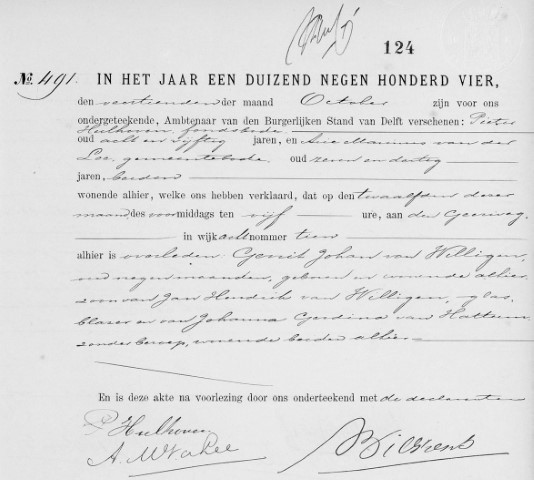 124
No. 491. IN HET JAAR EEN DUIZEND NEGEN HONDERD VIER,
den veertienden der maand October zijn voor ons
ondergeteekende, Ambtenaar van den Burgerlijken Stand van Delft verschenen: Pieter
Hulhoven, fondsbode
oud acht en vijftig jaren, en Arie Marinus van der
Lee, gemeentebode oud zeven en dertig
jaren, beiden
wonende alhier, welke ons hebben verklaard, dat op den twaalfden dezer
maand, des voormiddags ten vijf ure, aan den Geerweg
in wijk acht nommer tien
alhier is overleden: Gerrit Johan van Willigen,
oud negen maanden, geboren en wonende alhier,
zoon van Jan Hendrik van Willigen, glas-
blazer en van Johanna Gerdina van Hattum
zonder beroep, wonende beiden alhier
En is deze akte na voorlezing door ons onderteekend met de declaranten
P. Hulhoven
A. M. v. d. Lee